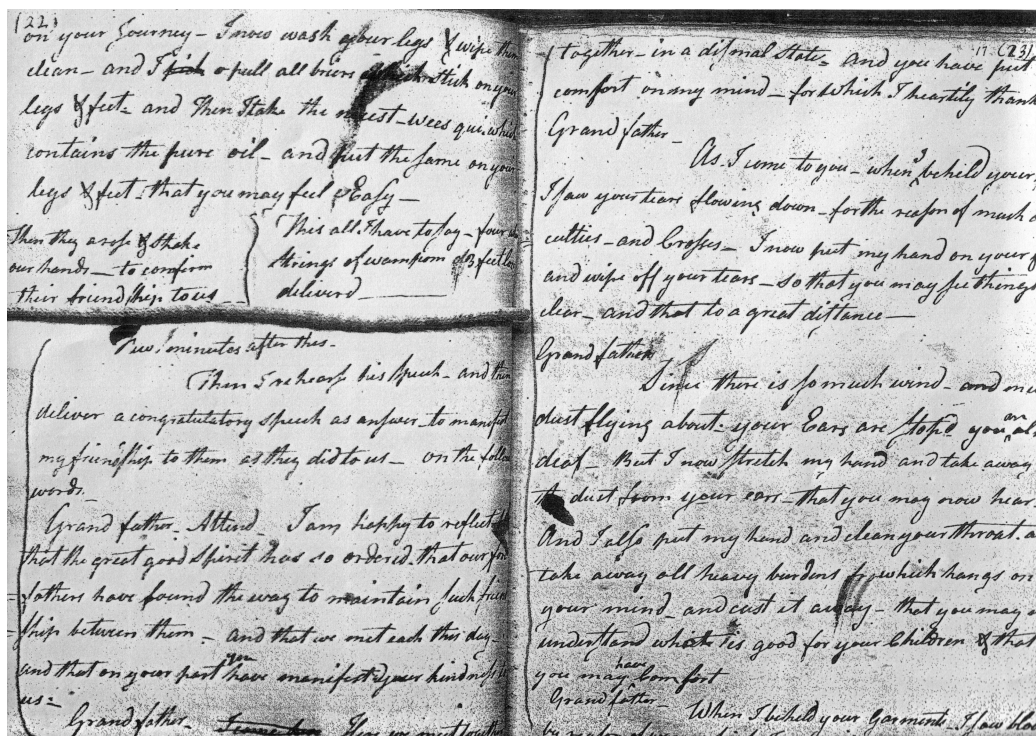 (22)
on your Journey – I now wash your legs & wipe them
clean – and I pick o pull all briers which stick on your
legs & feet – and Then I take the nicest – wees qui, which
contains the pure oil – and put the same on your
legs & feet – that you may feel Easy –
Then they arose & shake
our hands – to comfirm
their friendship to us –
This all I have to say – four
Strings of wampom & 3 feet
deliverd
Two minutes after this.
Then I rehearse his speech – and then
deliver a congratulatory speech as answer – to manifest
my friendship to them as they did to us – on the follow
words.
Grand father Attend I am happy to reflect
that the great good spirit has so ordered that our fore
= fathers have found the way to maintain such friend
= ship between them – and that we met each this day –
and that on your part you have manifested your kindness to
us =
Grand father – Here we met together
17 (23)
together – in a dismal State – And you have put
comfort on my mind – for which I heartily thank
Grand father –
As I come to you – when I beheld your
I saw your tears flowing down – for the reason of much
culties – and Crosses – I now put my hand on your f
and wipe off your tears – so that you may see things
clear – and that to a great distance –
Grand father
Since there is so much wind – and
dust flying about – your Ears are stop'd you an al
deaf – But I now stretch my hand and take away
the dust from your ears – that you may now hear
And I also put my hand and clean your throat. a
take away all heavy burdens which hangs on
your mind and cast it away – that you may a
understand what is good for your Children & that
you may have Comfort
Grand father –
When I beheld your Garments – I saw bloo